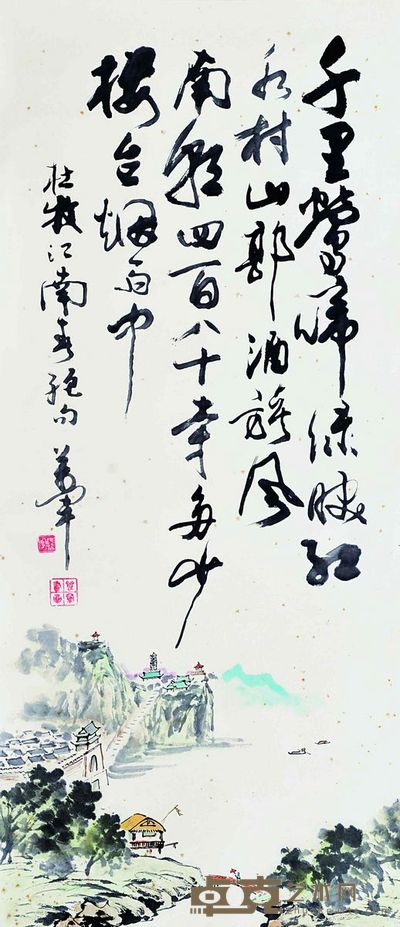 千里鶯啼绿映红
水村山郭酒旗风
南朝四百八十寺多少
楼台烟雨中
杜牧江南春绝句
艺术网